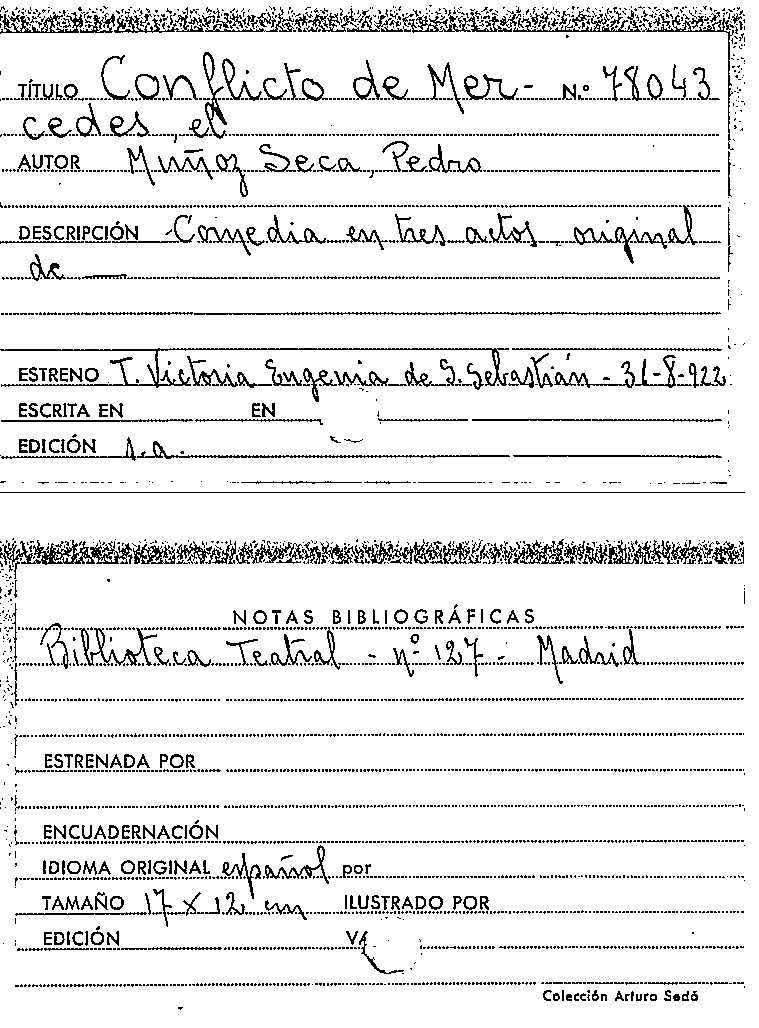 TÍTULO Conflicto de Mer- N.º 78043
cedes, el
AUTOR Muñoz Seca, Pedro
DESCRIPCIÓN -Comedia en tres actos, original
de —
ESTRENO T. Victoria Eugenia de S. Sebastián - 31-8-922
ESCRITA EN EN
EDICIÓN s.a.
NOTAS BIBLIOGRÁFICAS
Biblioteca Teatral - nº 127 - Madrid
ESTRENADA POR
ENCUADERNACIÓN
IDIOMA ORIGINAL español por
TAMAÑO 17 x 12 cm ILUSTRADO POR
EDICIÓN
Colección Arturo Sedó